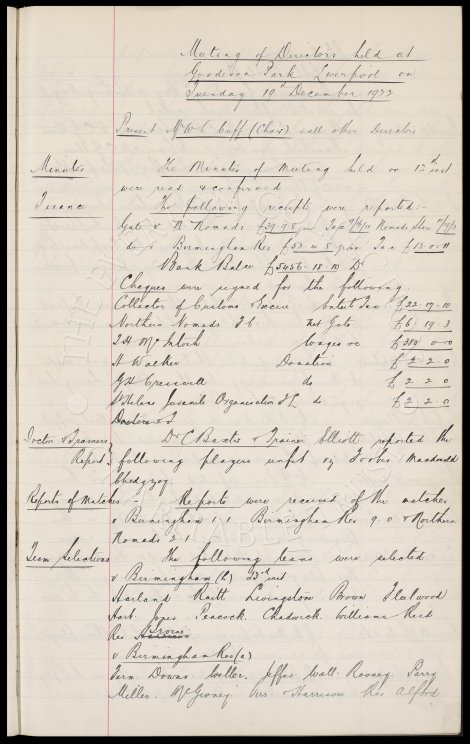 Meeting of Directors held at
Goodison Park Liverpool on
Tuesday 19th December 1922
Present Mr W C Cuff (Chair) & all other Directors
Minutes The Minutes of Meeting held on 12th inst
were read & confirmed
Finance The following receipts were reported:-
Gate v N Nomads £39.9.8 Tax Nomads Share
do v Birmingham Res £53.4.8 Tax £13.0.11
Bank Balce £5456.18.10 Dr
Cheques were signed for the following
Collector of Customs & Excise Entert Tax £22.17.10
Northern Nomads F C Net Gate £61.19.3
T H McIntosh Wages &c £380.0.0
H Walker Donation £2.2.0
G H Cresswell do £2.2.0
St Helens Juvenile Organisation do £2.2.0
Doctor &
Doctor & Trainers Dr C Baxter & Trainer Elliott reported the
Report. following players unfit Forbes Macdonald
Chedgzoy.
Reports of Matches - Reports were received of the matches
v Birmingham 1.1 Birmingham Res 9.0 & Northern
Nomads 2.1
Team Selections The following teams were selected
v Birmingham (h) 23rd inst
Harland Raitt Livingstone Brown Fleetwood
Hart Jones. Peacock. Chadwick Williams Reid
Res Irvine
v Birmingham Res (a)
Fern Downs Weller. Jeffs Wall. Rooney. Parry
Miller. Orr & Harrison Res Alford